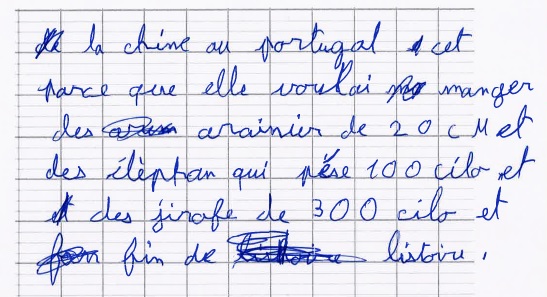 la chine au portugal cet
parce que elle voulai manger
des arainier de 20 cM et
des élèphan qui pése 100 cilo et
des jirafe de 300 cilo et
fin de listoire.